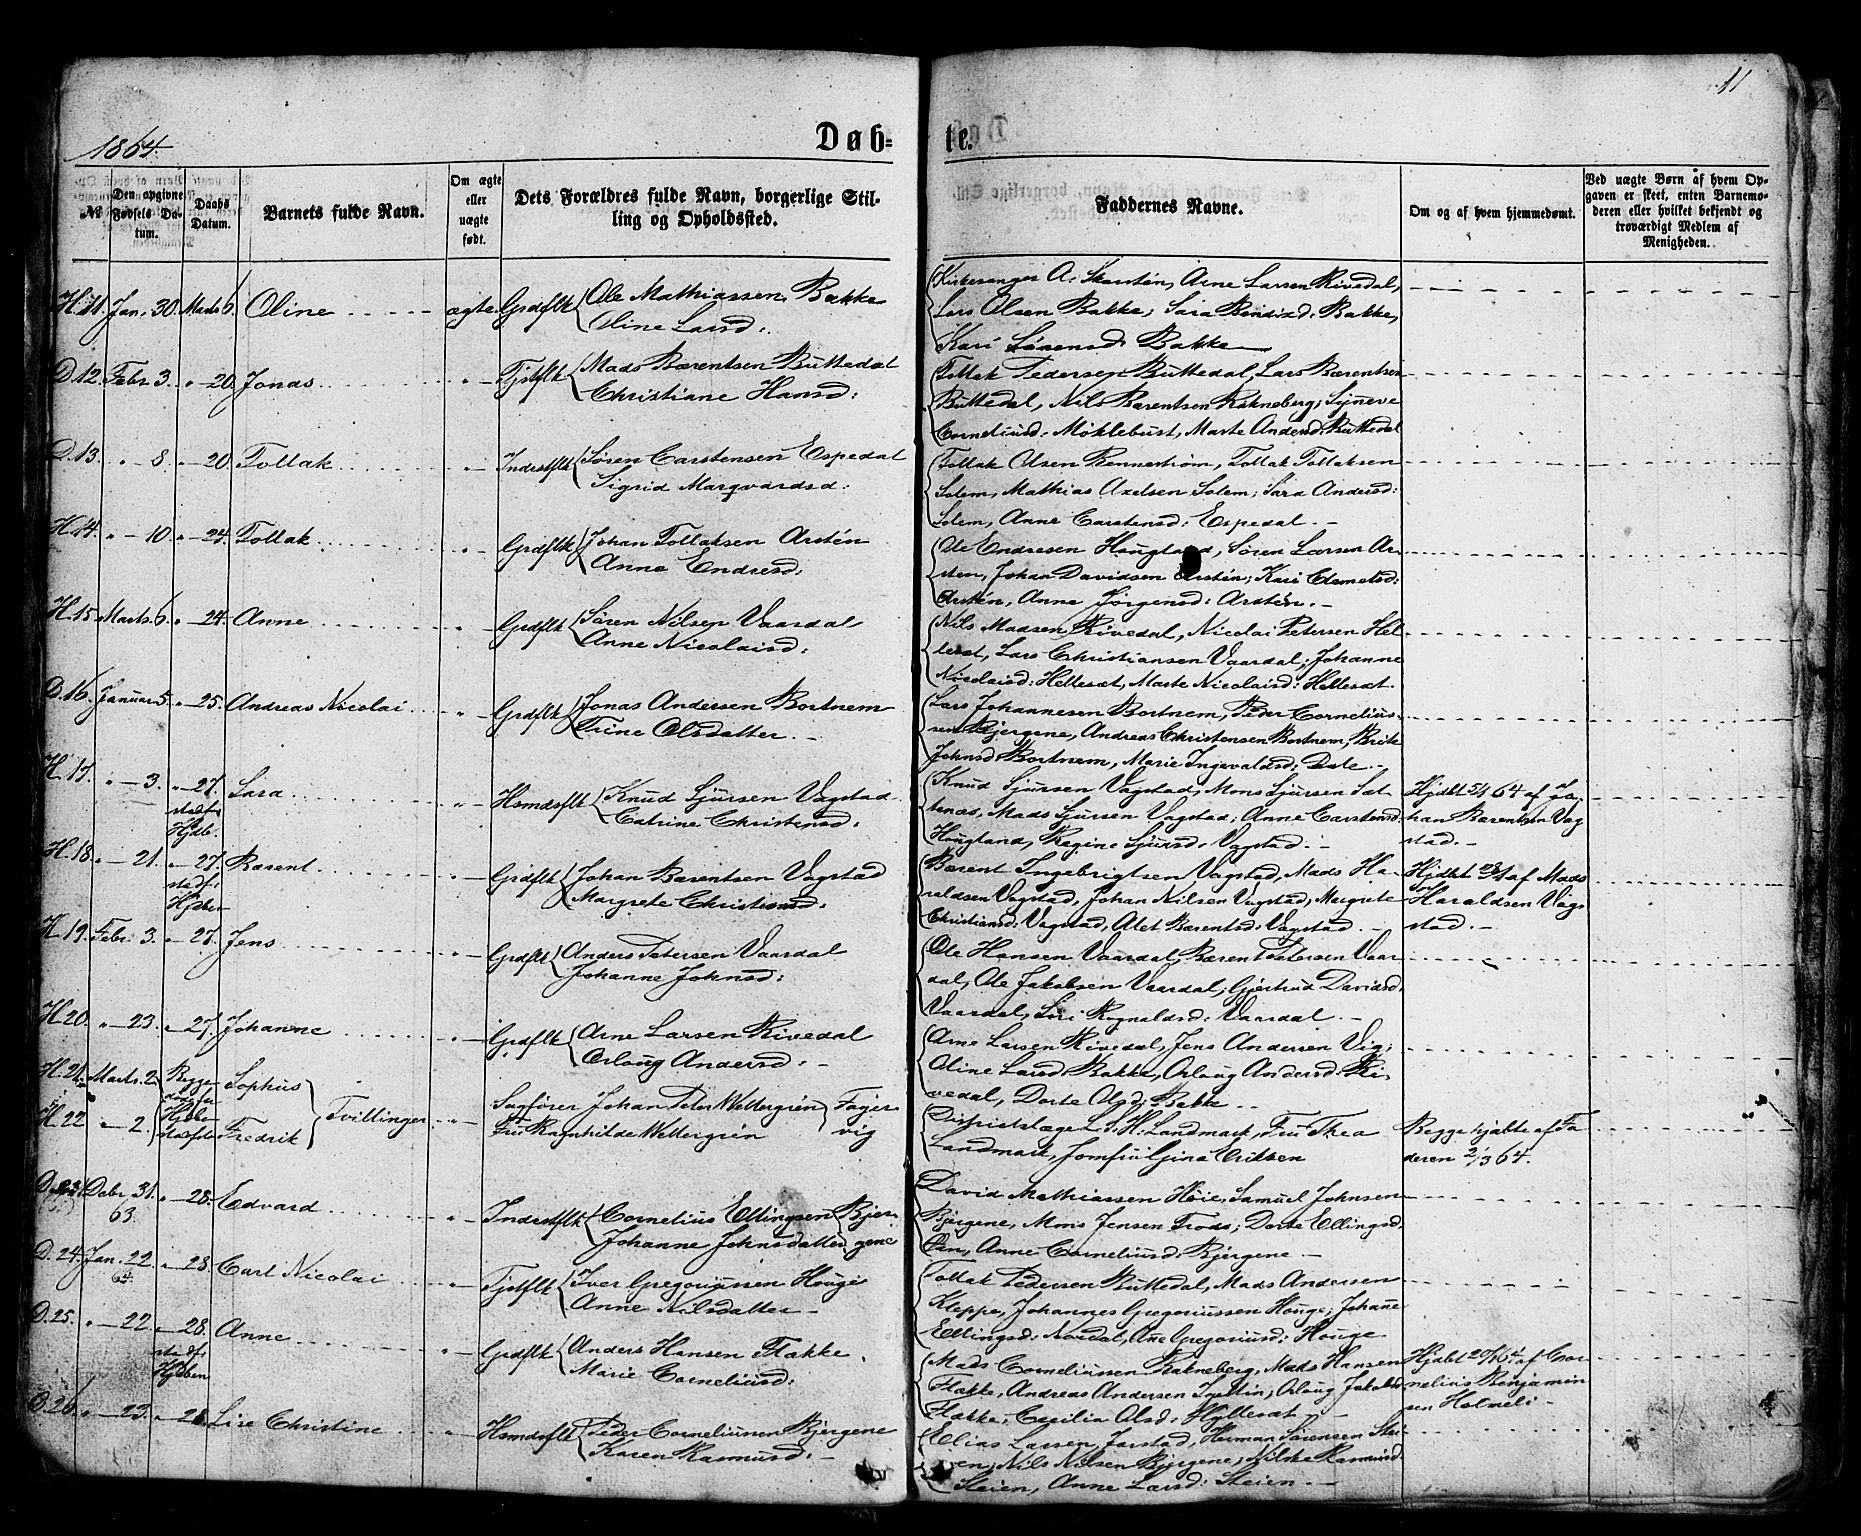 11
1864.
Døb-
te.
№
Den opgivne Fødsels Datum.
Daabs Datum.
Barnets fulde Navn.
Om ægte eller uægte født.
Dets Forældres fulde Navn, borgerlige Stilling og Opholdssted.
Faddernes Navne.
Om og af hvem hjemmedømt.
Ved uægte Børn af hvem Opgaven er skeet, enten Barnemoderen eller hvilket bekjendt og troværdigt Medlem af Menigheden.
H. 11. Jan. 30. Marts 6. Oline ægte Grdflk Ole Mathiassen Bakke
Oline Larsd:
Kirkesanger A. Skarstén, Arne Larsen Rivedal,
Lars Olsen Bakke; Sara Bendixd: Bakke,
Kari Sørensd. Bakke
D. 12. Febr. 3. " - 20. Jonas " Tjstflk Mads Bærentsen Buttedal
Christiane Hansd:
Tollak Pedersen Buttedal, Lars Bærentsen
Buttedal, Nils Bærentsen Rakneberg; Synneve
Corneliusd: Møklebust, Marte Andersd: Buttedal
D. 13. " - 8. " - 20. Tollak " Inderstflk Søren Carstensen Espedal
Sigrid Margvardsd:
Tollak Olsen Rennestrøm, Tollak Tollaksen
Solem, Mathias Axelsen Solem; Sara Andersd:
Solem, Anne Carstensd: Espedal. -
H. 14. " - 10. " - 24. Tollak " Grdflk Johan Tollaksen Arstén
Anne Endresd:
Ole Endresen Hougland, Søren Larsen Ar-
stén, Johan Davidsen Arstén; Kari Clemetsd:
Arstén, Anne Jørgensd: Arstén. -
H. 15. Marts 6. " - 24. Anne " Grdflk Søren Nilsen Vaardal
Anne Nicolaisd:
Nils Madsen Rivedal, Nicolai Petersen Hel-
lesæt, Lars Christiansen Vaardal; Johanne
Nicolaisd: Hellesæt, Marte Nicolaisd: Hellesæt.
D. 16. Januar 5. " - 25. Andreas Nicolai " Grdflk Jonas Andersen Bortnem
Trine Olsdatter. -
Lars Johannesen Bortnem, Peder Cornelius-
sen Bjergene, Andreas Christensen Bortnem, Brite
Johnsd. Bortnem, Marie Ingevaldsd: Dale. -
H. 17. " - 3. " - 27. Sara " Hsmdsflk Knud Sjursen Vagstad
stadf:
Hjdb.
Catrine Christensd:
Knud Sjursen Vagstad, Mons Sjursen Sæt-
tenæs, Mads Sjursen Vagstad; Anne Carstensd:
Hougland, Regine Sjursd: Vagstad. -
Hjdbt 5/1 64 af Jo-
han Bærentsen Vag
stad. -
H. 18. " - 21. " - 27. Bærent " Grdflk Johan Bærentsen Vagstad
stadf:
Hjdben
Margrete Christiansd:
Bærent Ingebrigtsen Vagstad, Mads Ha-
raldsen Vagstad, Johan Nilsen Vagstad, Margrete
Christiansd: Vagstad, Alet Bærentsd: Vagstad. -
Hjdbt 23/1 af Mads
Haraldsen Vag-
stad. -
H. 19. Febr. 3. " - 27. Jens " Grdflk Anders Petersen Vaardal
Johanne Johnsd:
Ole Hansen Vaardal, Bærent Petersen Vaar
dal, Ole Jakobsen Vaardal; Gjertrud Davidsd:
Vaardal, Siri Rognaldsd: Vaardal. -
H. 20. " - 23. " - 27. Johanne " Grdflk Arne Larsen Rivedal
Orloug Andersd: -
Arne Larsen Rivedal, Jens Andersen Vig;
Oline Larsd Bakke, Orloug Andersd: Ri-
vedal, Dorte Olsd: Bakke. -
H. 21. Marts 2. Begge Sophus
H. 22 " - 2. Hjdben stadf. Fredrik Tvillinger " Sagfører Johan Peter Wettergrén Fager
Fru Ragnhilde Wettergrén vig
Districtslæge S. H. Landmark, Fru Thea
Landmark, Jomfru Gina Eriksen
Begge hjdbte af Fa
deren 2/3 64.
D. 23. Debr. 31. " - 28. Edvard " Inderstflk Cornelius Ellingsen Bjer
63.
Johanne Johnsdatter gene
David Mathiassen Høie, Samuel Johnsen
Bjergene, Mons Jensen Frøes; Dorte Ellingsd.
Øen, Anne Corneliusd: Bjergene. -
D. 24. Jan. 22. " - 28. Carl Nicolai " Tjstflk Iver Gregoriussen Houge
64.
Anne Nilsdatter -
Tollak Pedersen Buttedal, Mads Andersen
Kleppe, Johannes Gregoriussen Houge; Johanne
Ellingsd: Nordal, Ane Gregoriusd: Houge
D. 25. " - 22. " - 28. Anne " Grdflk Anders Hansen Flække
stadf:
Hjdben
Marie Corneliusd:
Mads Corneliussen Rakneberg, Mads Hansen
Flække, Andreas Andersen; Orloug Jakobsd.
Flække, Cecilia Olsd: Hyllesæt -
Hjdbt 20/1 64 af Cor-
nelius Benjamin
sen Holmeli -
D. 26. " - 23. " - 28. Lise Christine " Hsmdsflk Peder Corneliussen Bjergene
Karen Rasmusd: -
Elias Larsen Jarstad, Herman Sørensen Stei-
en, Nils Nilsen Bjergene; Nilske Rasmusd.
Steien, Anne Larsd: Steien. -